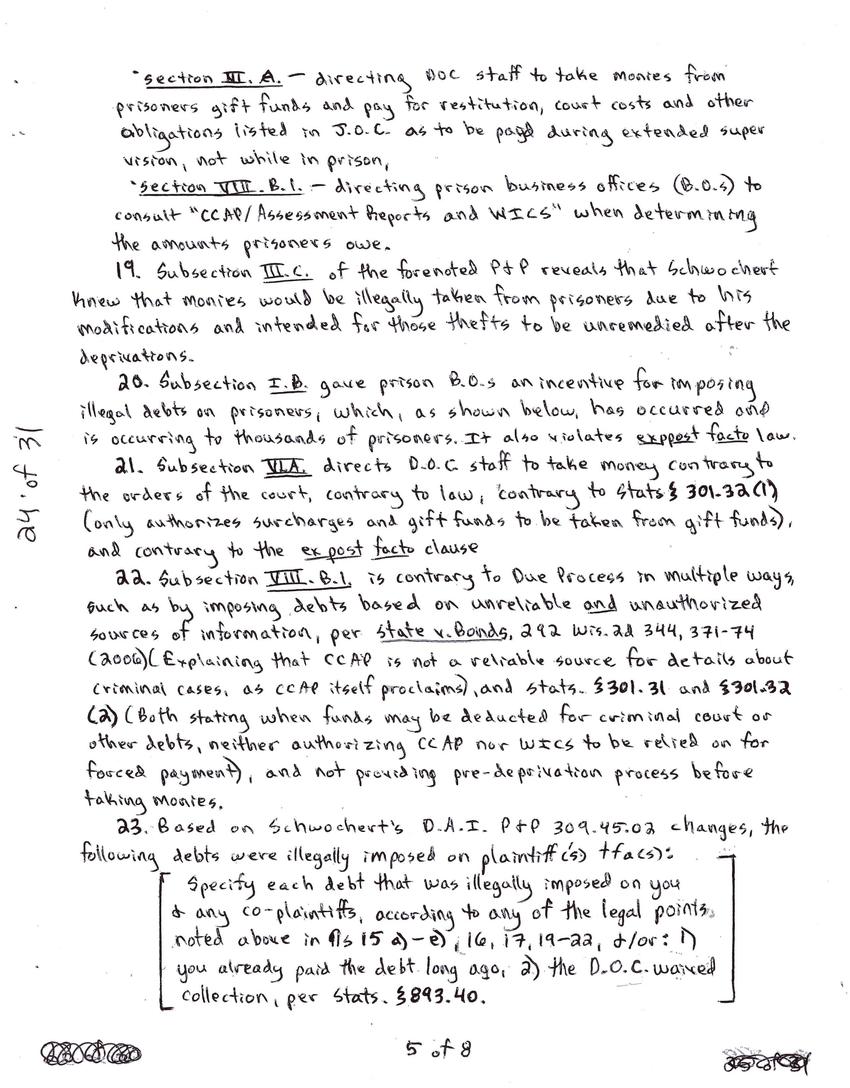 •section III. A. – directing DOC staff to take monies from
prisoners gift funds and pay for restitution, court costs and other
obligations listed in J.O.C. as to be paid during extended super
vision, not while in prison,
•section VIII. B. 1. – directing prison business offices (B.O.s) to
consult "CCAP/Assessment Reports and WICS" when determining
the amounts prisoners owe.
19. Subsection III. C. of the forenoted P&P reveals that Schwochert
knew that monies would be illegally taken from prisoners due to his
modifications and intended for those thefts to be unremedied after the
deprivations.
20. Subsection I.B. gave prison B.O.s an incentive for imposing
illegal debts on prisoners, which, as shown below, has occurred and
is occurring to thousands of prisoners. It also violates exppost facto law.
21. Subsection VI.A. directs D.O.C. staff to take money contrary to
the orders of the court, contrary to law, contrary to Stats § 301.32(1)
(only authorizes surcharges and gift funds to be taken from gift funds),
and contrary to the ex post facto clause
22. Subsection VIII. B.1. is contrary to Due Process in multiple ways,
such as by imposing debts based on unreliable and unauthorized
sources of information, per state v. Bonds, 292 Wis. 2d 344, 371-74
(2006)(Explaining that CCAP is not a reliable source for details about
criminal cases, as CCAP itself proclaims), and stats. §301.31 and §301.32
(2) (Both stating when funds may be deducted for criminal court or
other debts, neither authorizing CCAP nor WICS to be relied on for
forced payment), and not providing pre-deprivation process before
taking monies.
23. Based on Schwochert's D.A.I. P&P 309.45.02 changes, the
following debts were illegally imposed on plaintiff('s) tfa(s):
[Specify each debt that was illegally imposed on you
& any co-plaintiffs, according to any of the legal points
noted above in ¶s 15 a)-e), 16, 17, 19-22, &/or: 1)
you already paid the debt long ago, 2) the D.O.C. waived
collection, per stats. §893.40.]
24 of 31
5 of 8